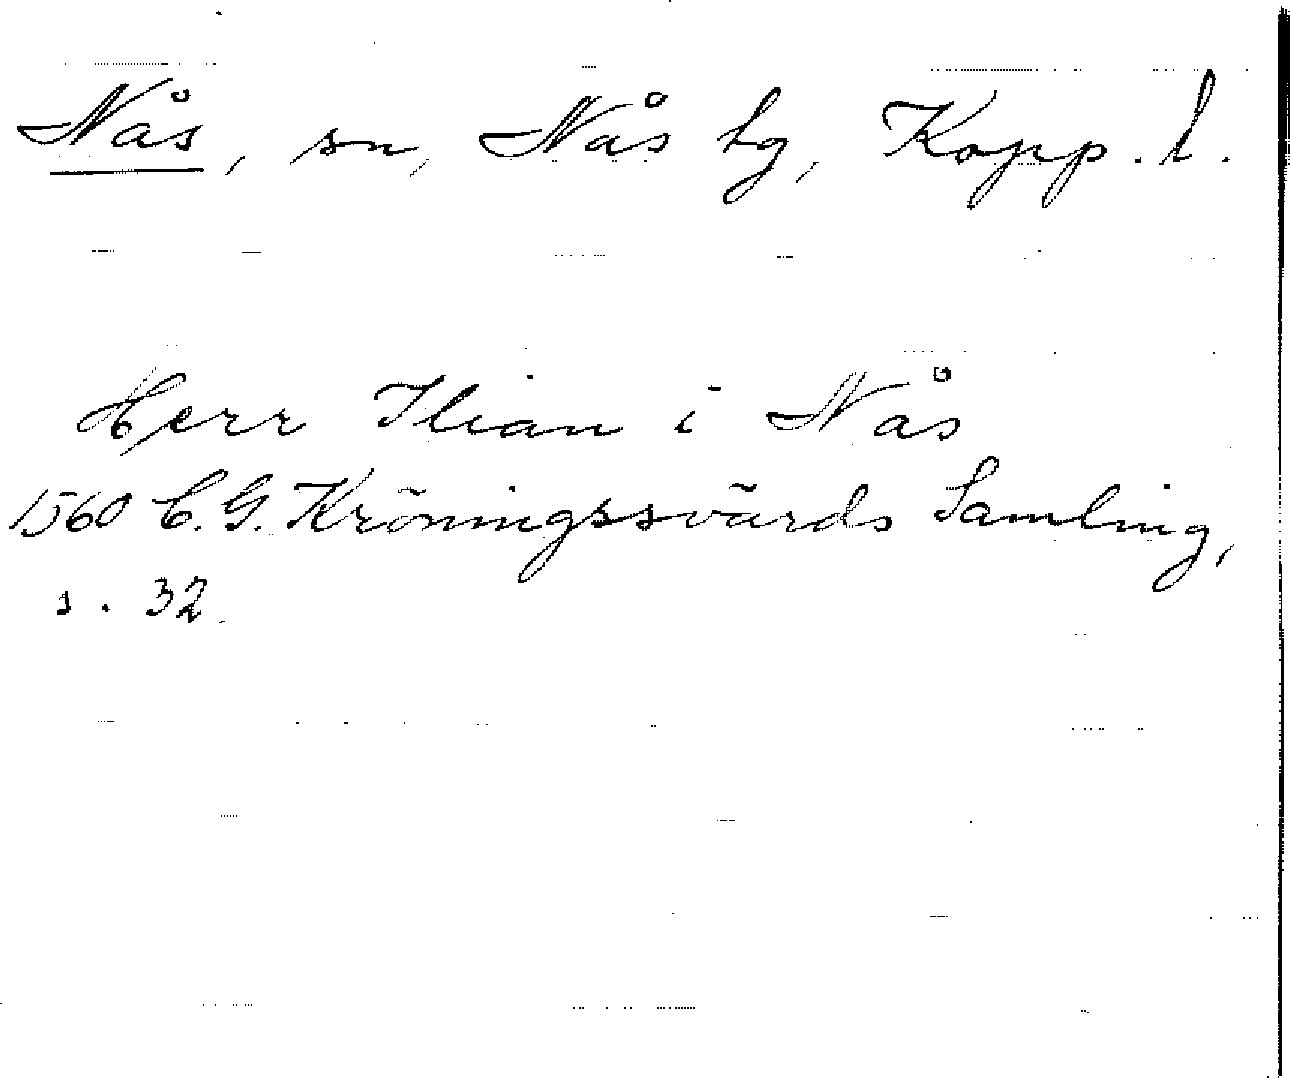 Nås, sn, Nås tg, Kopp. l.
Herr Ilian i Nås
1560 C. G. Kröningssvärds Samling,
s. 32.